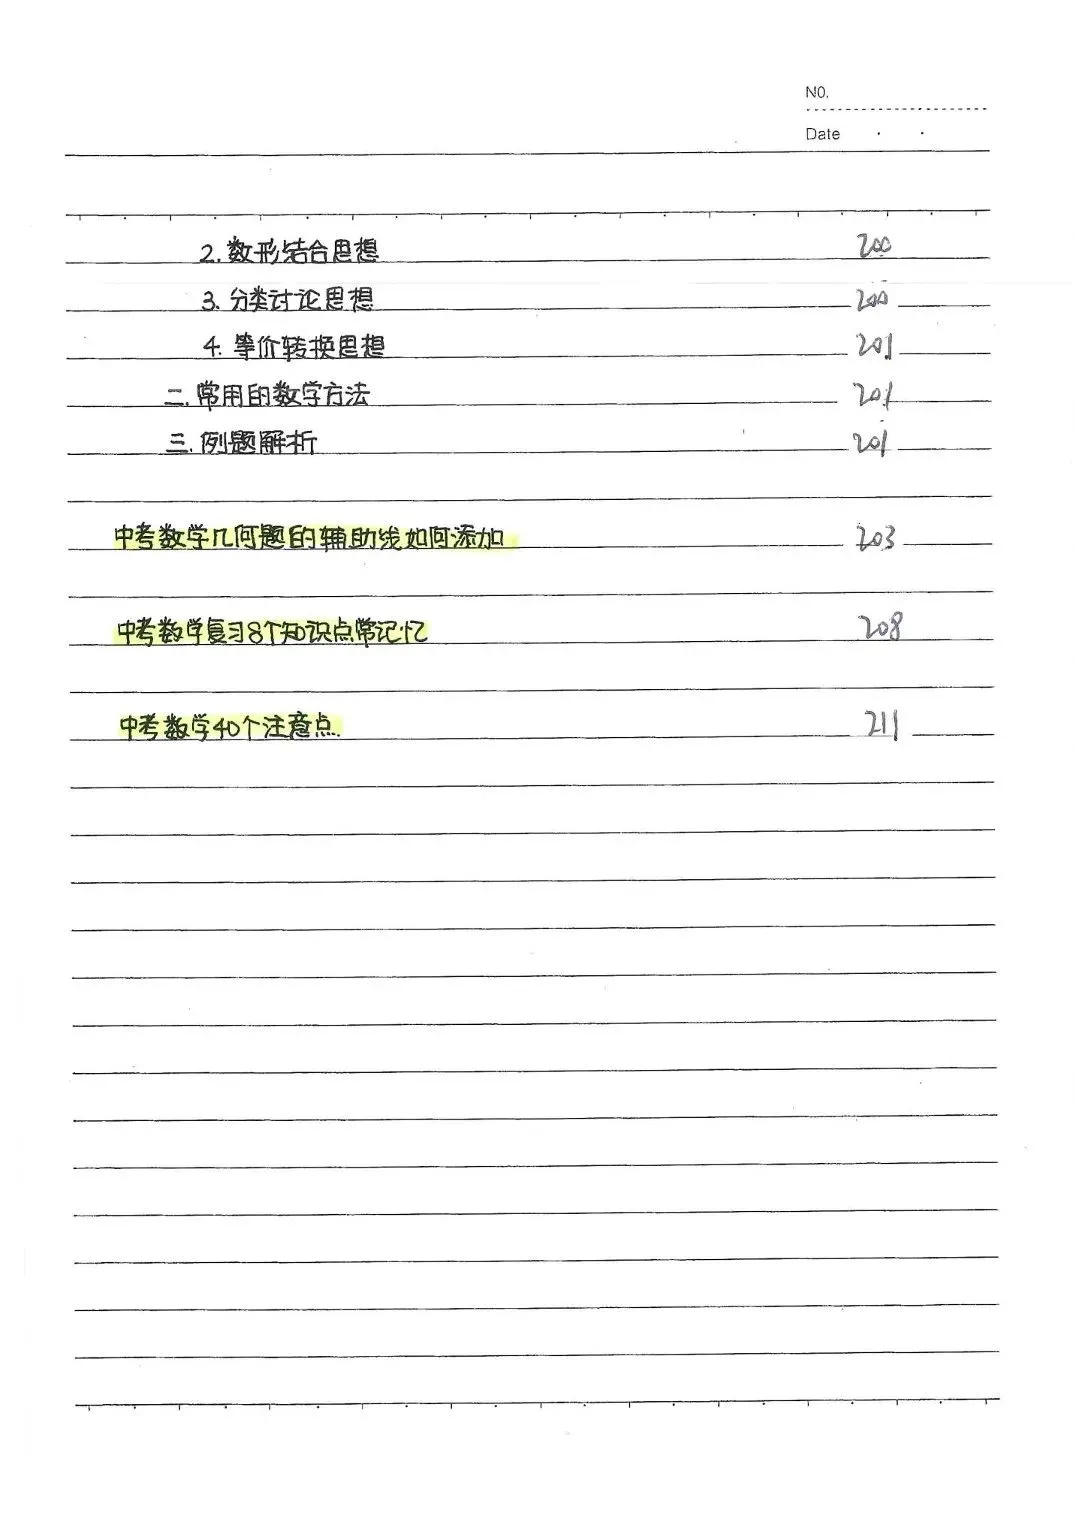 NO.
Date
2. 数形结合思想 200
3. 分类讨论思想 200
4. 等价转换思想 201
二. 常用的数学方法 201
三. 例题解析 201
中考数学几何题的辅助线如何添加 203
中考数学复习8个知识点常记忆 208
中考数学40个注意点. 211